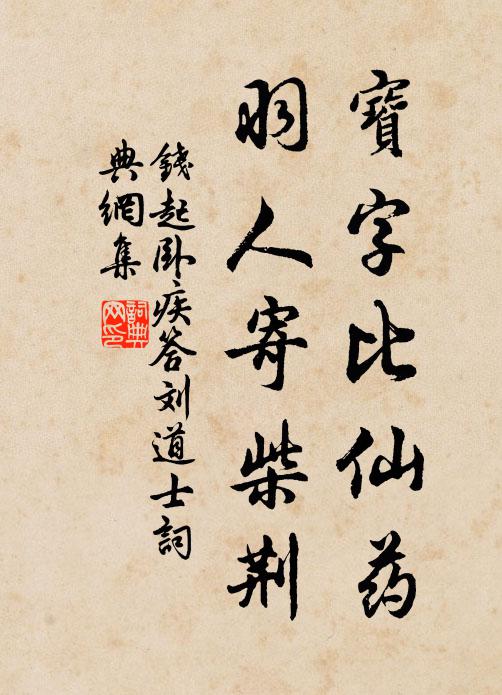 寶字比仙药
羽人寄柴荆
錢起卧疾答刘道士詞
典網集
詞典网印